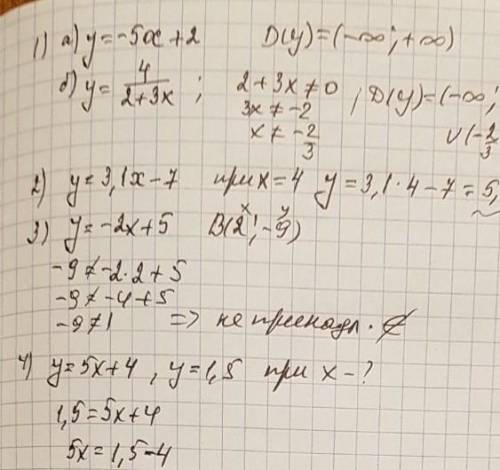 1) а) y=-5x+2 D(y)=(-∞; +∞)
б) y=4/(2+3x); 2+3x≠0, D(y)=(-∞;
3x≠-2
x≠-2/3 ∪(-2/3
2) y=3,1x-7 при x=4 y=3,1·4-7=5,
3) y=-2x+5 B(2; -9)
x y
-9≠-2·2+5
-9≠-4+5
-9≠1 => не принадл. ∉
4) y=5x+4, y=1,5 при x-?
1,5=5x+4
5x=1,5-4